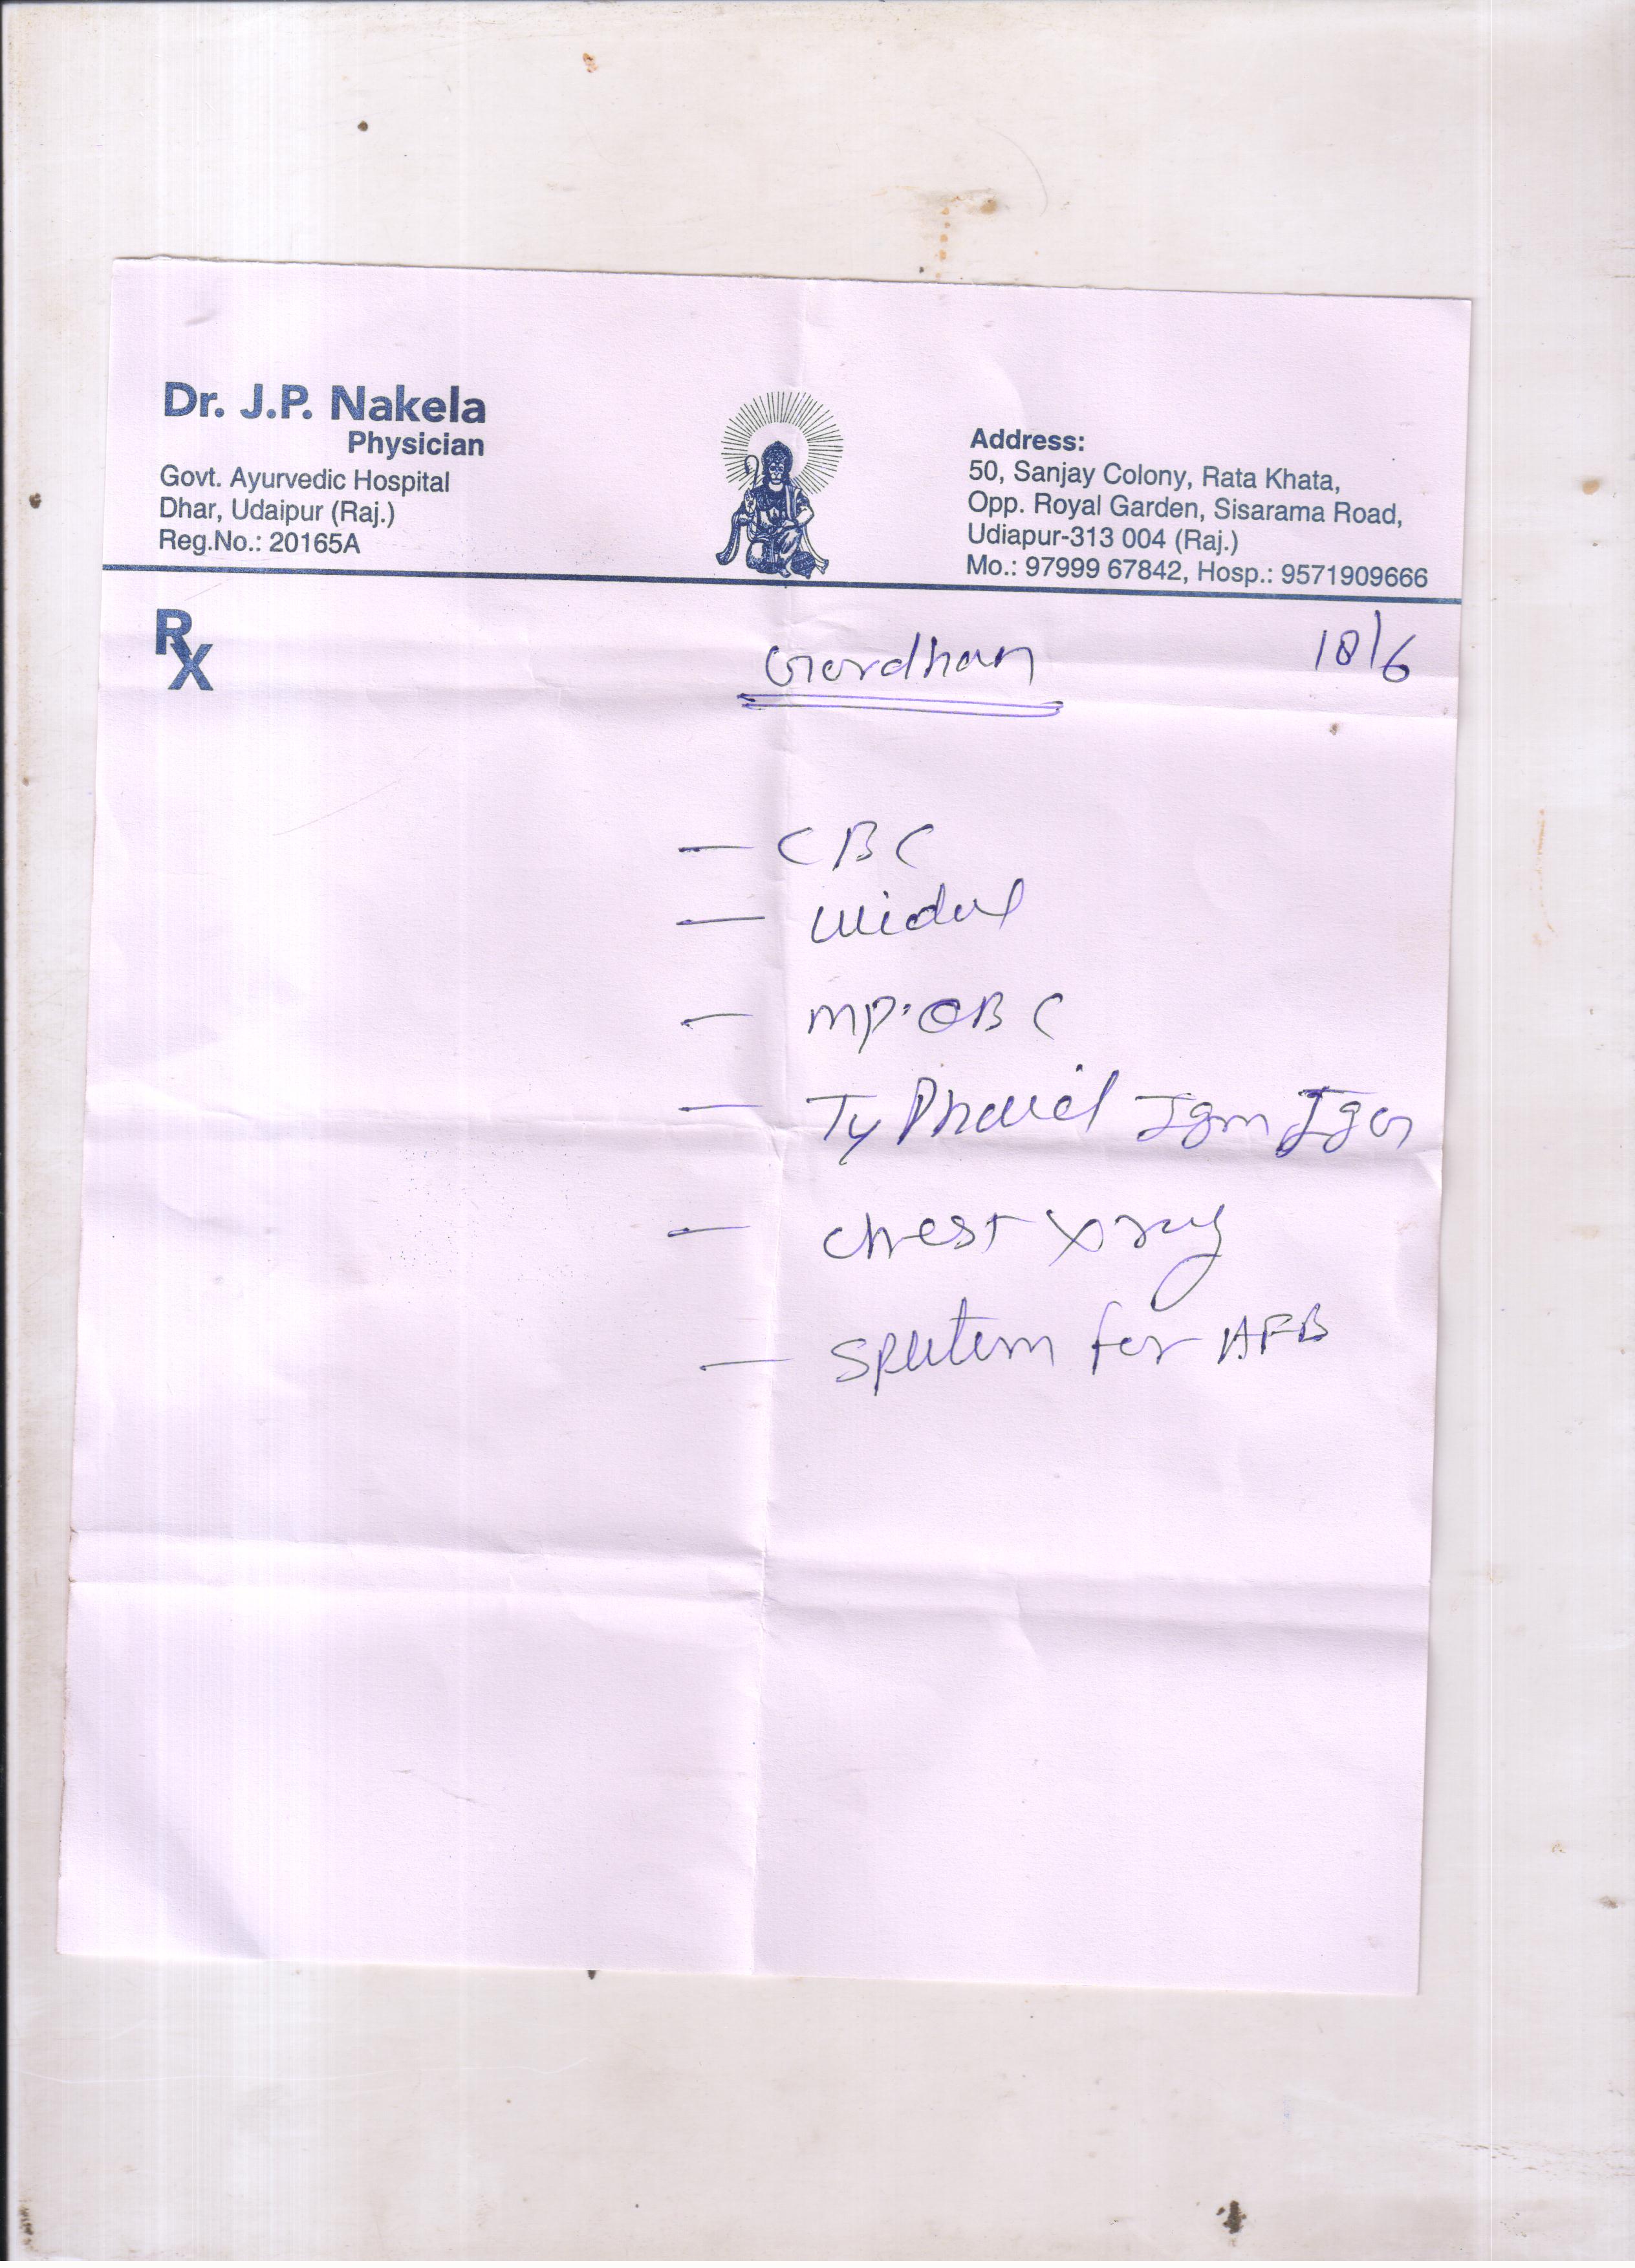 Dr. J.P. Nakela
Physician
Govt. Ayurvedic Hospital
Dhar, Udaipur (Raj.)
Reg.No.: 20165A
Address:
50, Sanjay Colony, Rata Khata,
Opp. Royal Garden, Sisarama Road,
Udiapur-313 004 (Raj.)
Mo.: 97999 67842, Hosp.: 9571909666
Rx
Gordhan 18/6
- CBC
- Widal
- MP. QBC
- Typhoid Igm Igg
- Chest xray
- Sputum for AFB